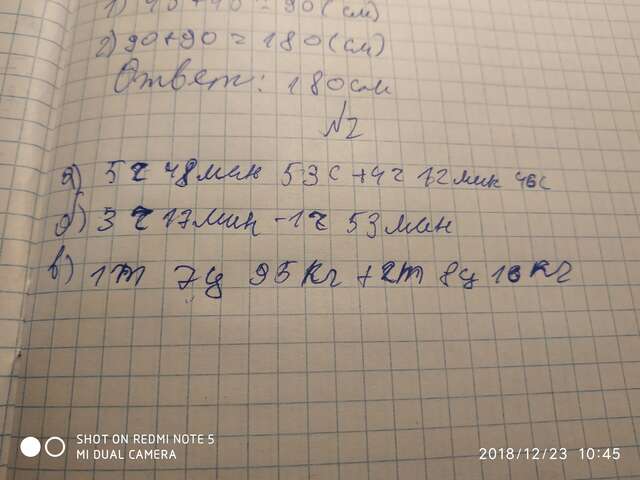 2) 90+90=180(см)
Ответ: 180см
№2
а) 5ч 48мин 53с +4ч 12мин 46с
б) 3ч 17мин -1ч 53мин
в) 1т 7ц 95кг +2т 8ц 16кг
SHOT ON REDMI NOTE 5
MI DUAL CAMERA
2018/12/23 10:45